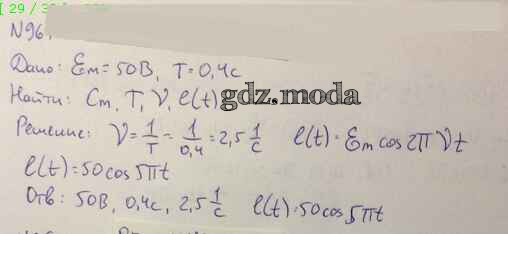 [ 29 / 3
N96.
Дано: Ԑm = 50В, T = 0,4с
Найти: Cm, T, ν, e(t) gdz.moda
Решение: ν = 1/T = 1/0,4 = 2,5 1/с e(t) = Ԑm cos 2π ν t
e(t) = 50 cos 5πt
Отв: 50В, 0,4с, 2,5 1/с e(t) = 50 cos 5πt